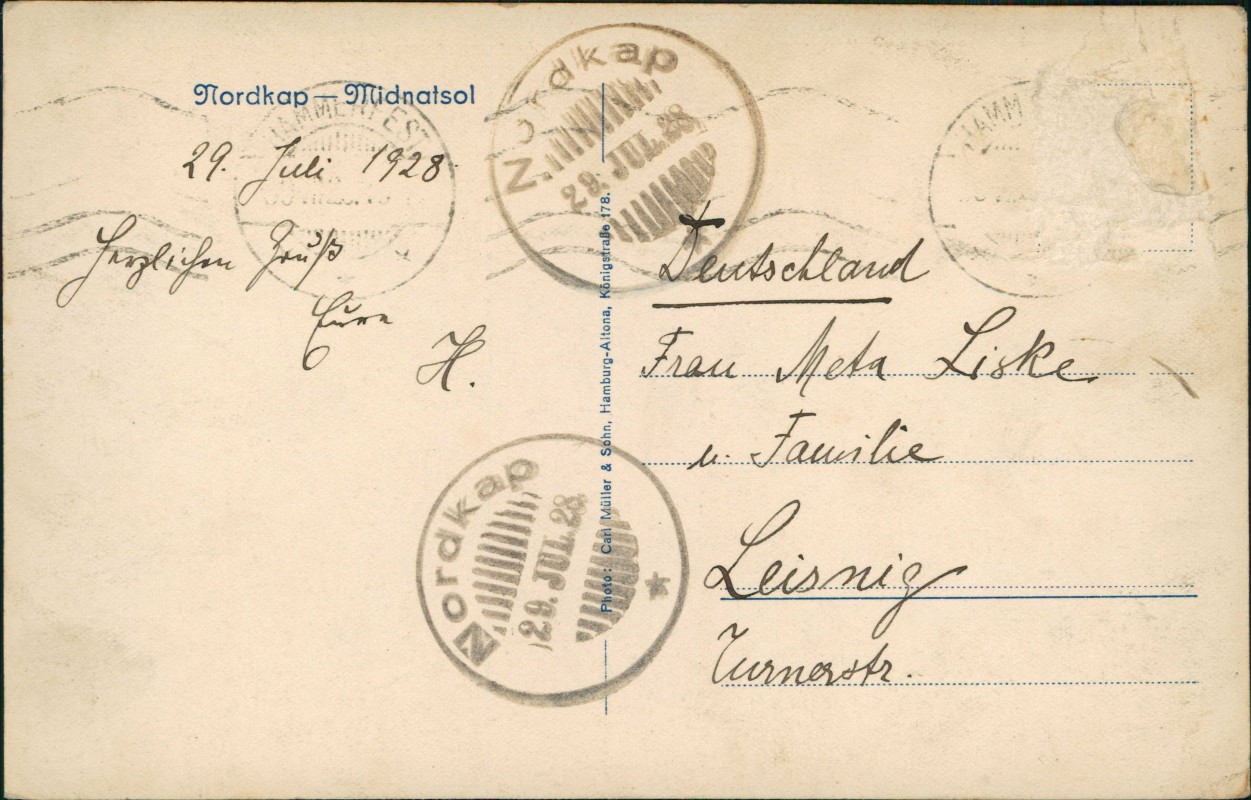 Nordkap — Midnatsol
29. Juli 1928
Herzlichen Gruß
Eure
H.
Nordkap
29. JUL. 28
Nordkap
29. JUL. 28
HAMMERFEST
HAMM
Photo: Carl Müller & Sohn, Hamburg-Altona, Königstraße 178.
Deutschland
Frau Meta Liske
u. Familie
Leisnig
Turnerstr.